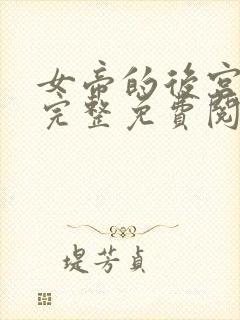 女帝的後宮
完整免費閱
堤芳貞